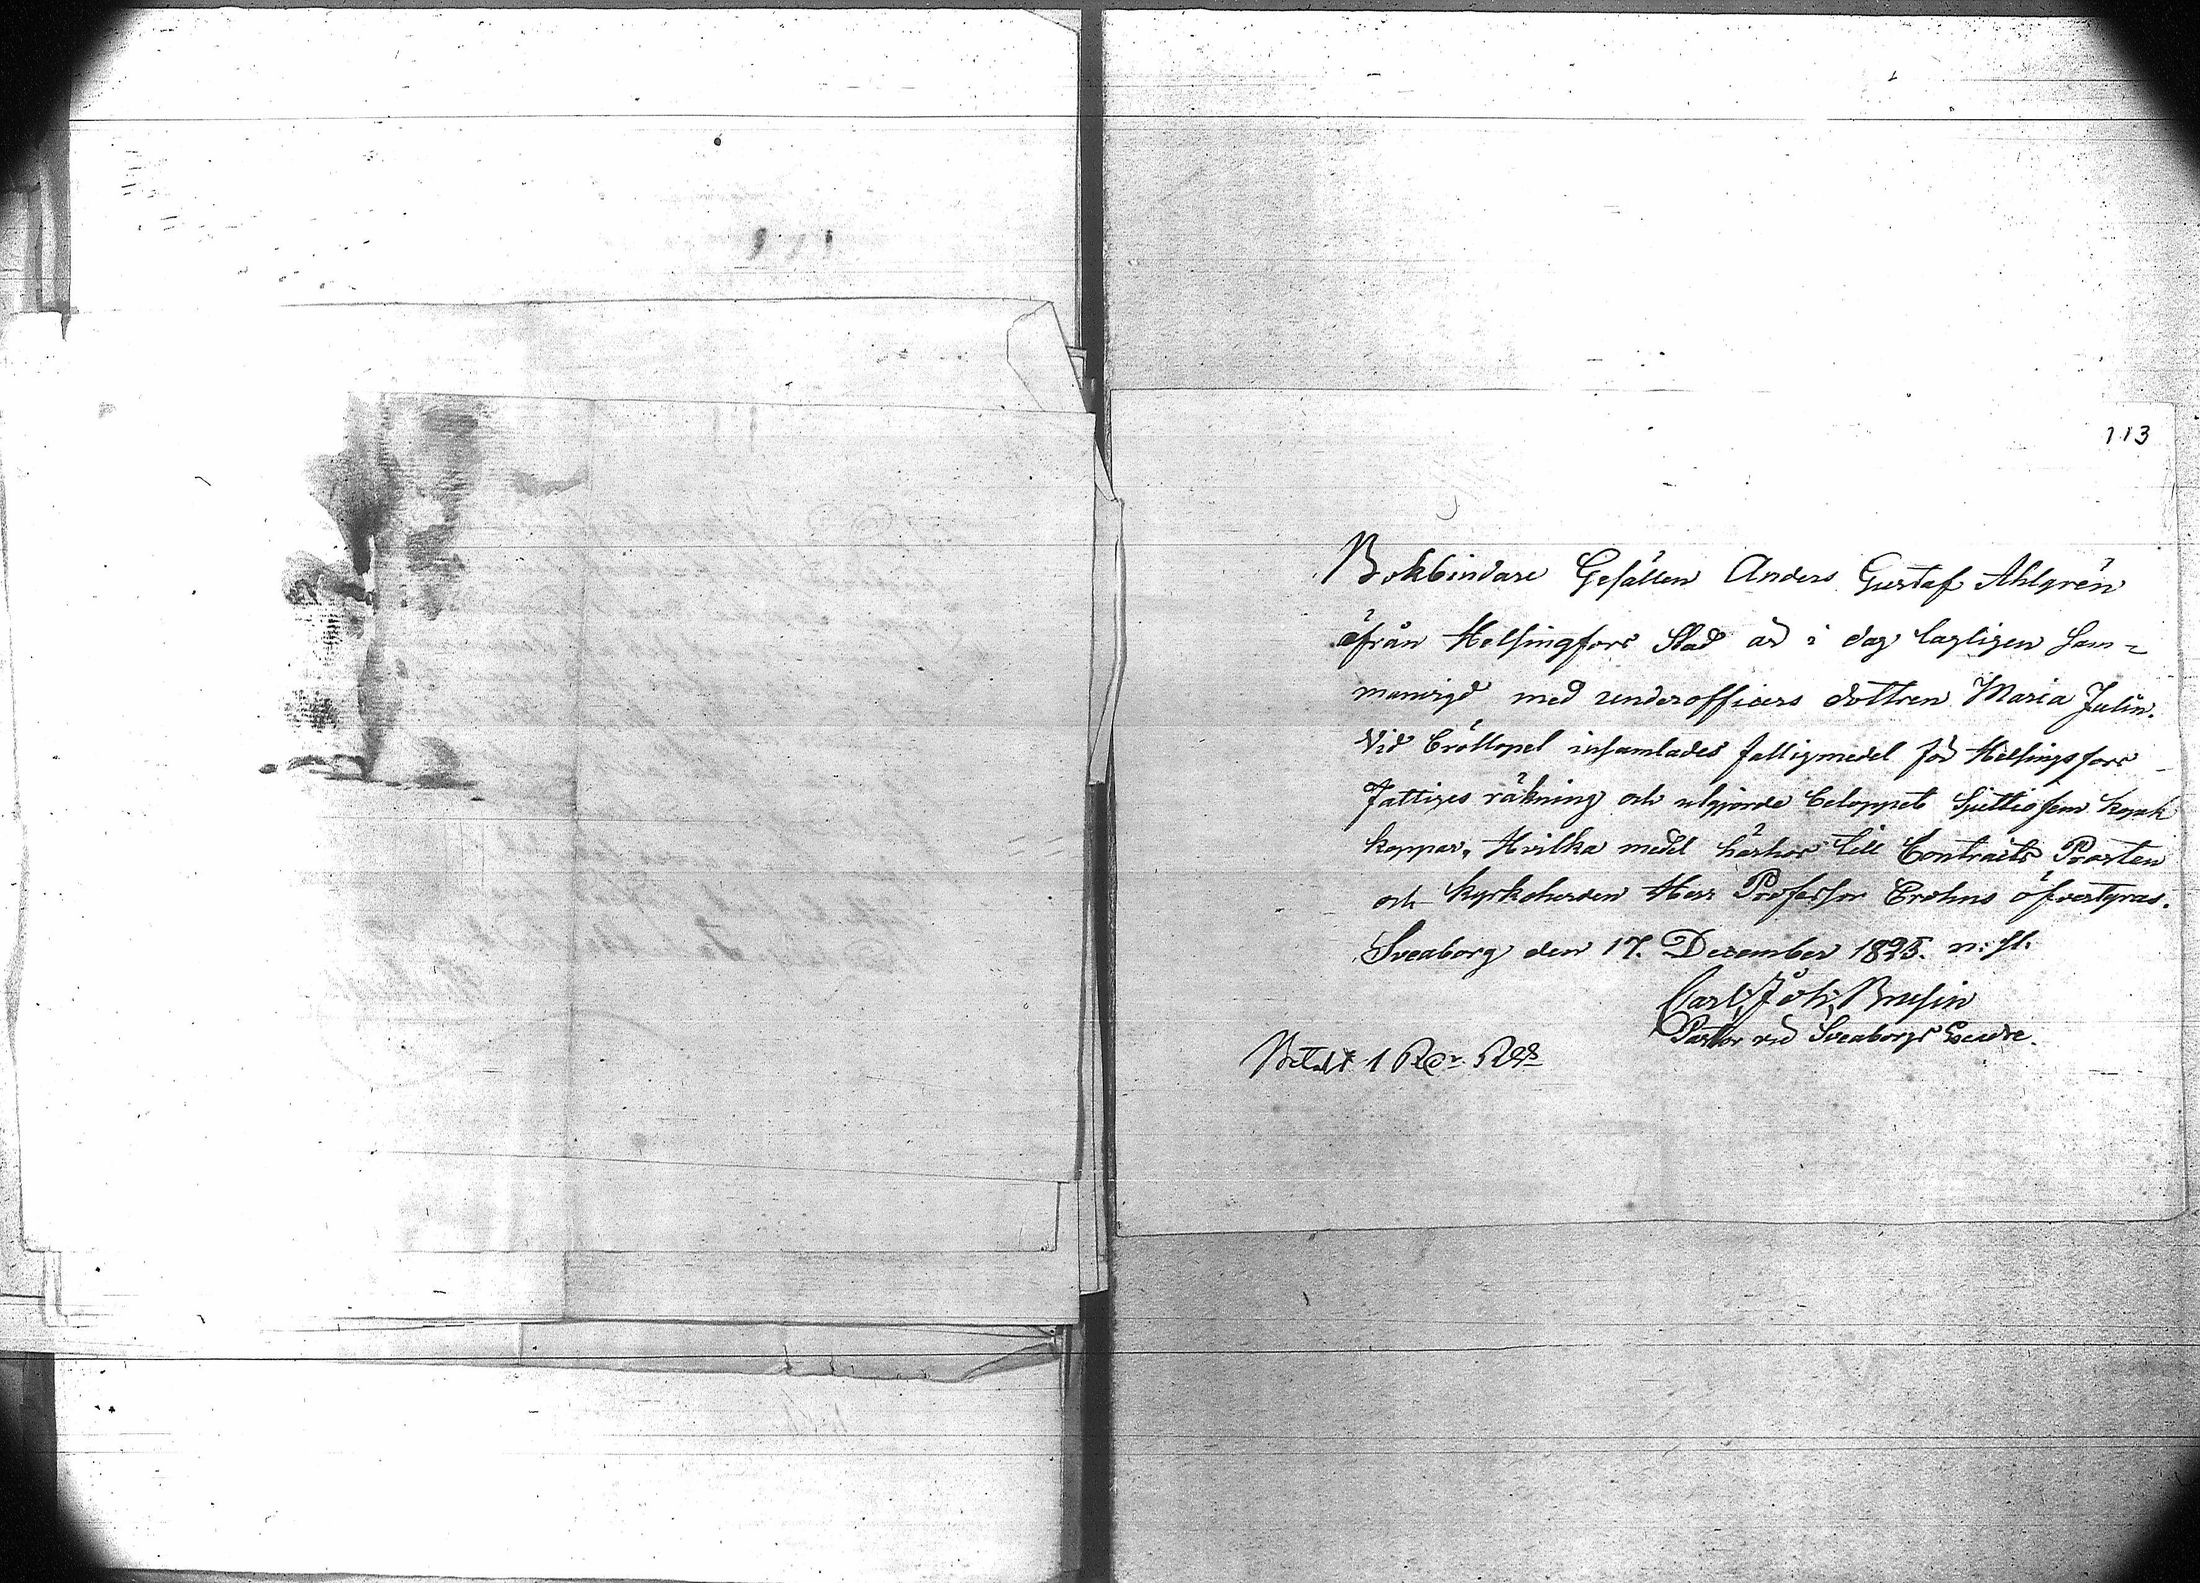 113
Bokbindare Gesällen Anders Gustaf Ahlgrén
ifrån Helsingfors Stad är i dag lagligen sam=
manvigd med underofficers dottren Maria Julin.
Vid bröllopet insamlades fattigmedel för Helsingfors
fattiges räkning och utgjorde beloppet Sjuttiofem kopek
koppar, Hvilka medel härhos till Contracts Prosten
och Kyrkoherden Herr Professor Crohns öfverstyras.
Sveaborg den 17. December 1825. n: st.
Carl Joh: Brusin
Pastor vid Sveaborgs Escadre.
Betalt 1 Rdr Rgs